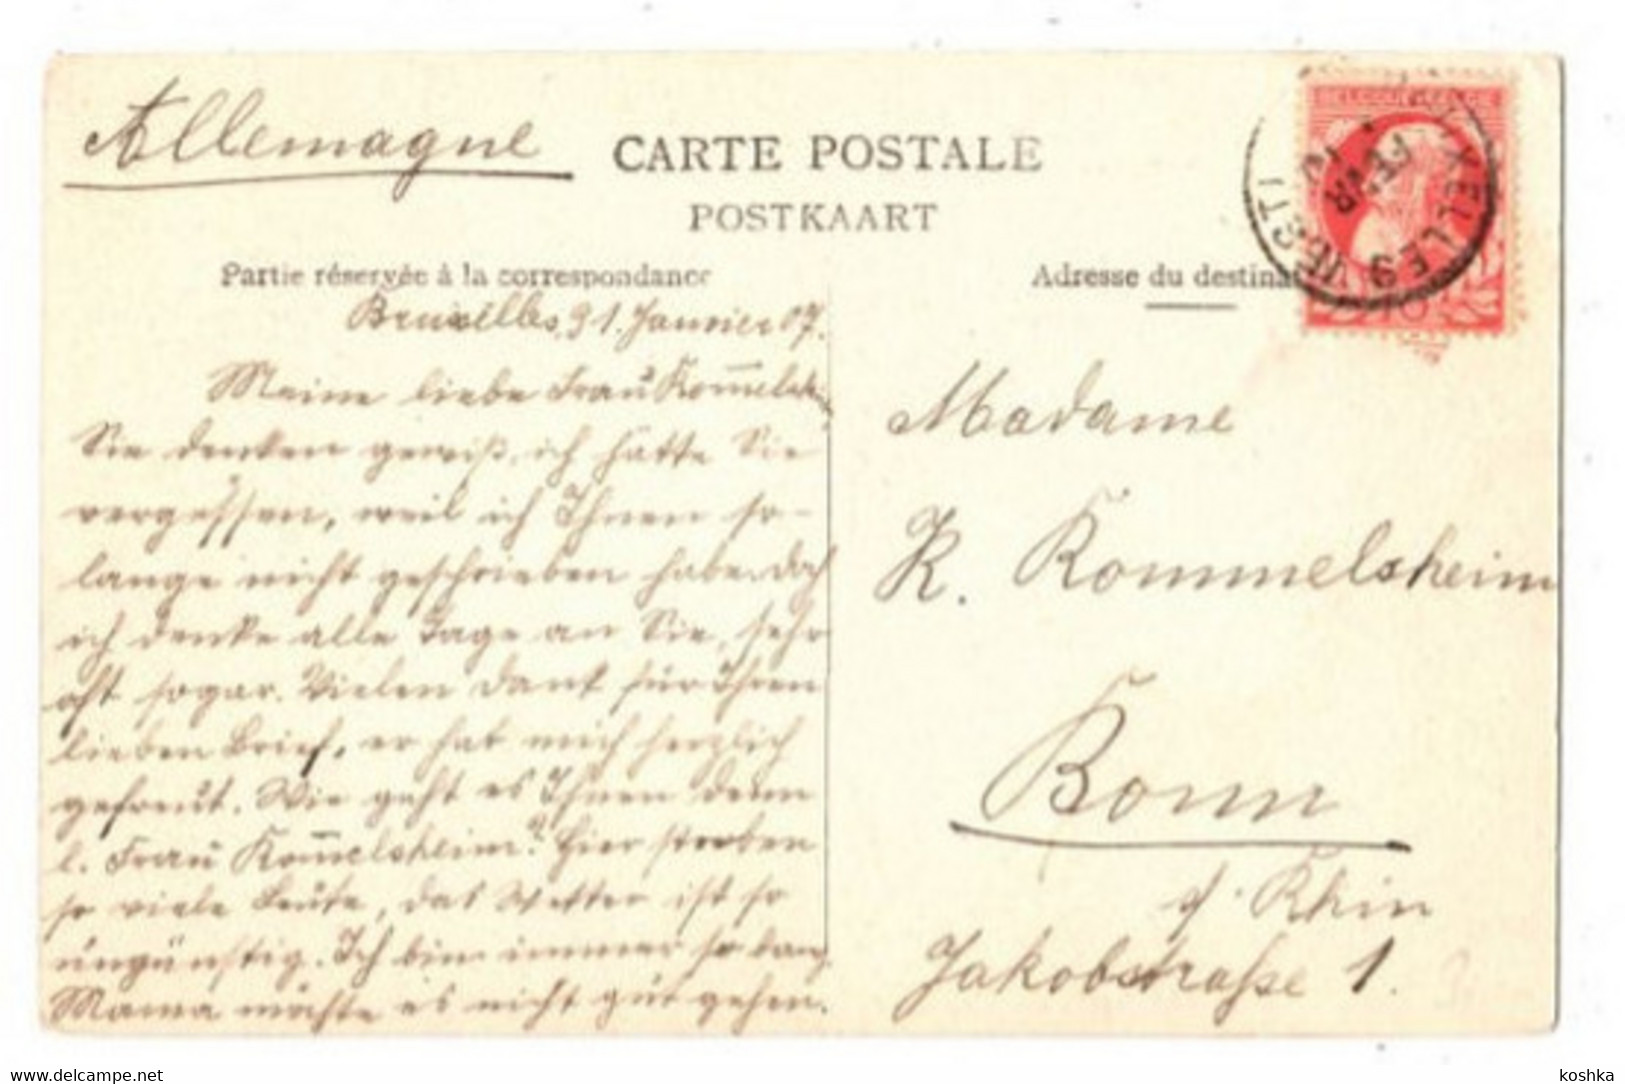 Allemagne
CARTE POSTALE
POSTKAART
Partie réservée à la correspondance
Adresse du destinat
BRUXELLES
FEVR
BELGIQUE
10
Bruxelles, 31. Janvier 07.
Meine liebe Frau Kom̅elsheim
Sie denken gewiß, ich hätte Sie
vergessen, weil ich Ihnen so-
lange nicht geschrieben habe. doch
ich denke alle Tage an Sie, sehr
oft sogar. Vielen Dank für Ihren
lieben Brief, er hat mich herzlich
gefreut. Wie geht es Ihnen denn
l. Frau Kom̅elsheim? Hier sterben
so viele Leute, das Wetter ist so
ungünstig. Ich bin immer so bang
Mama möchte es nicht gut gehen.
Madame
K. Rommelsheim
Bonn
s/. Rhin
Jakobstraſse 1.
www.delcampe.net
koshka